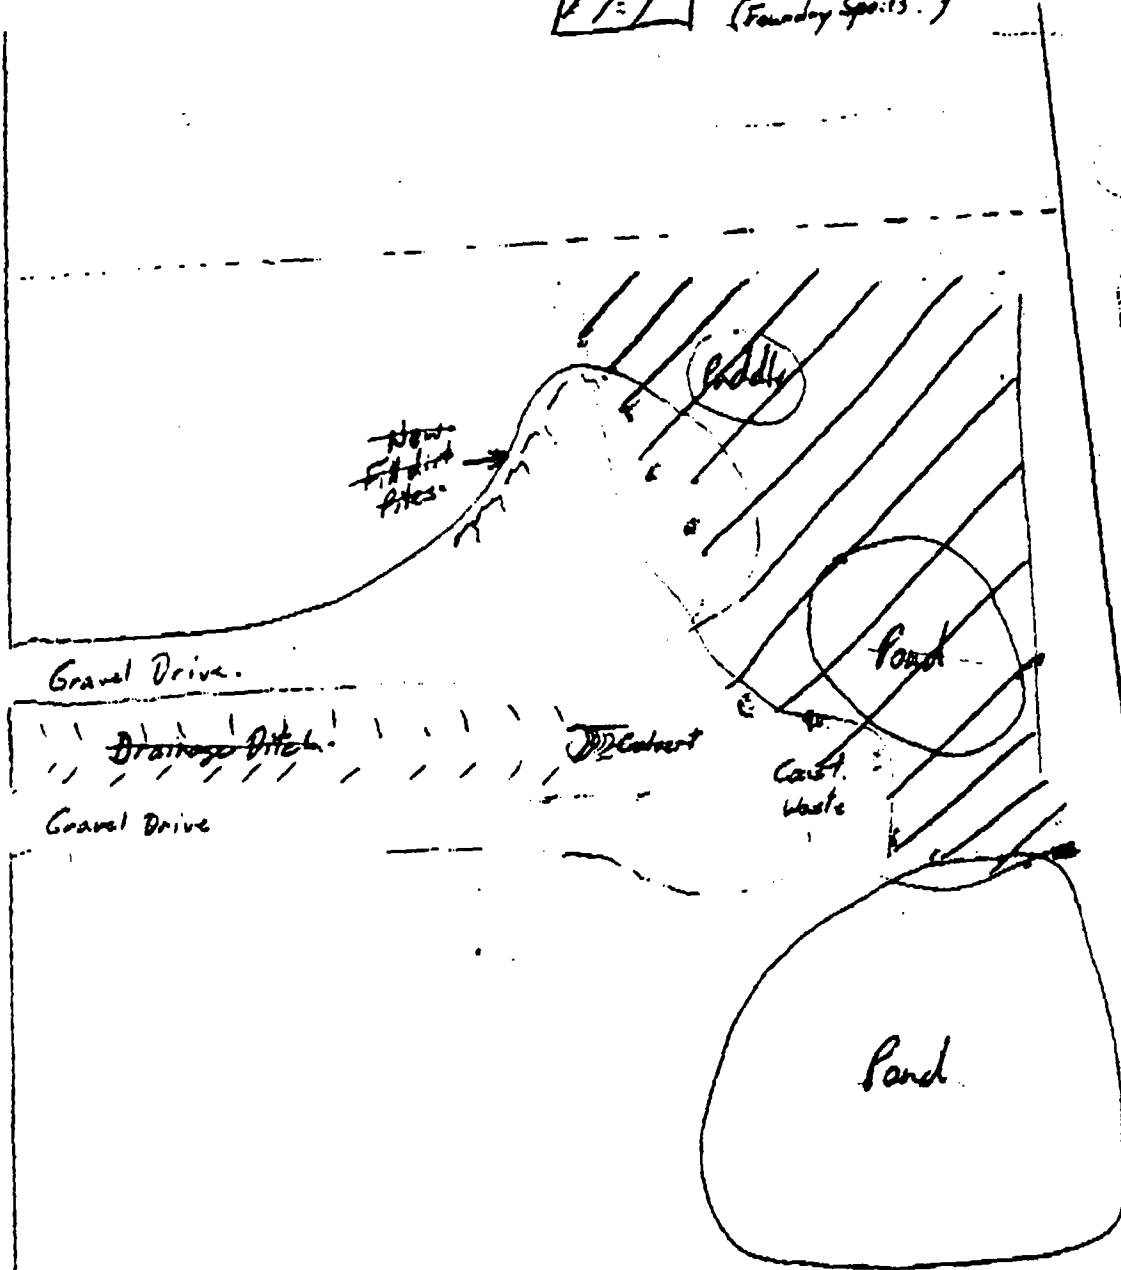 (Foundry Spoils.)
Puddle
New
Fill dirt
Piles.
Pond
Gravel Drive.
Drainage Ditch.
Culvert
Const.
Waste
Gravel Drive
Pond